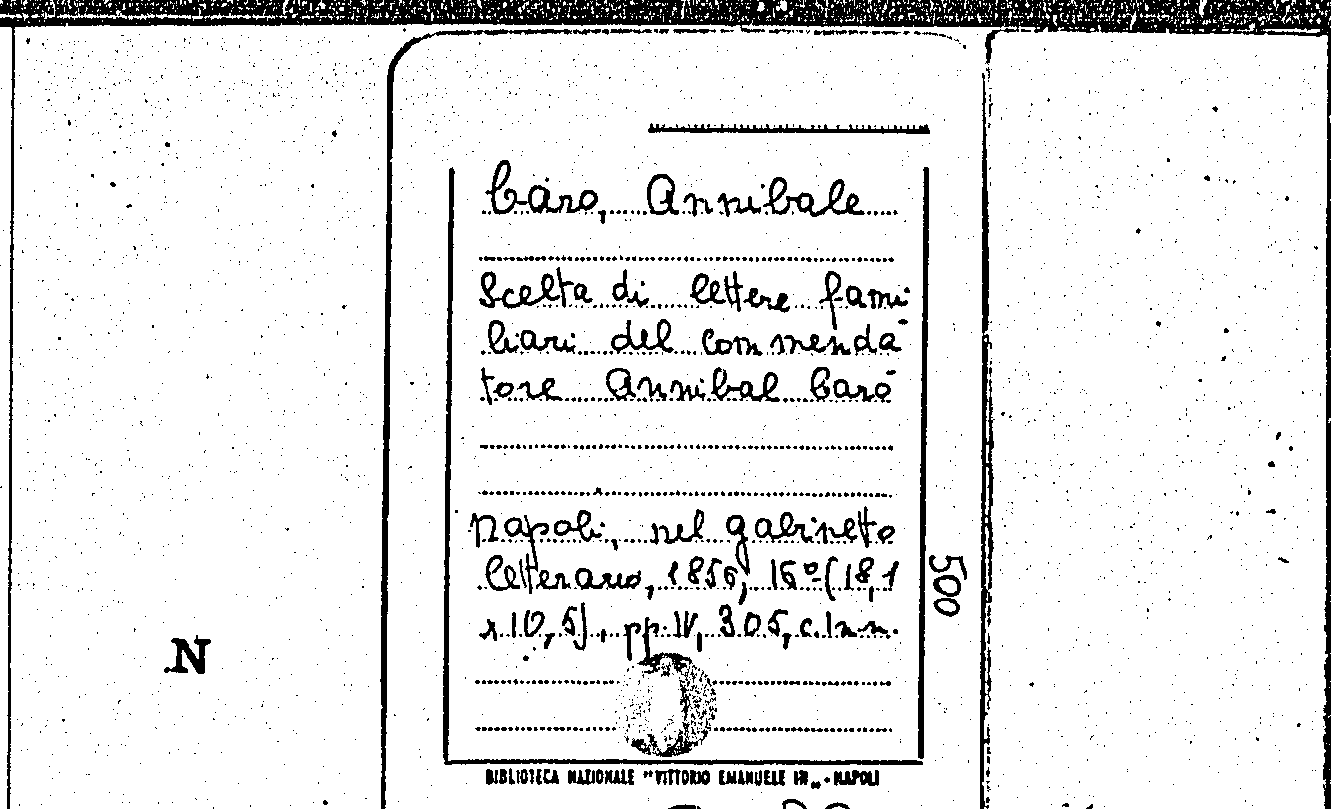 Caro, Annibale
Scelta di lettere fami
liari del commenda
tore Annibal Caro
Napoli, nel gabinetto
letterario, 1856, 16º (18,1
x 10,5), pp. IV, 305, c. 1 n.n.
500
N
BIBLIOTECA NAZIONALE "VITTORIO EMANUELE III" - NAPOLI